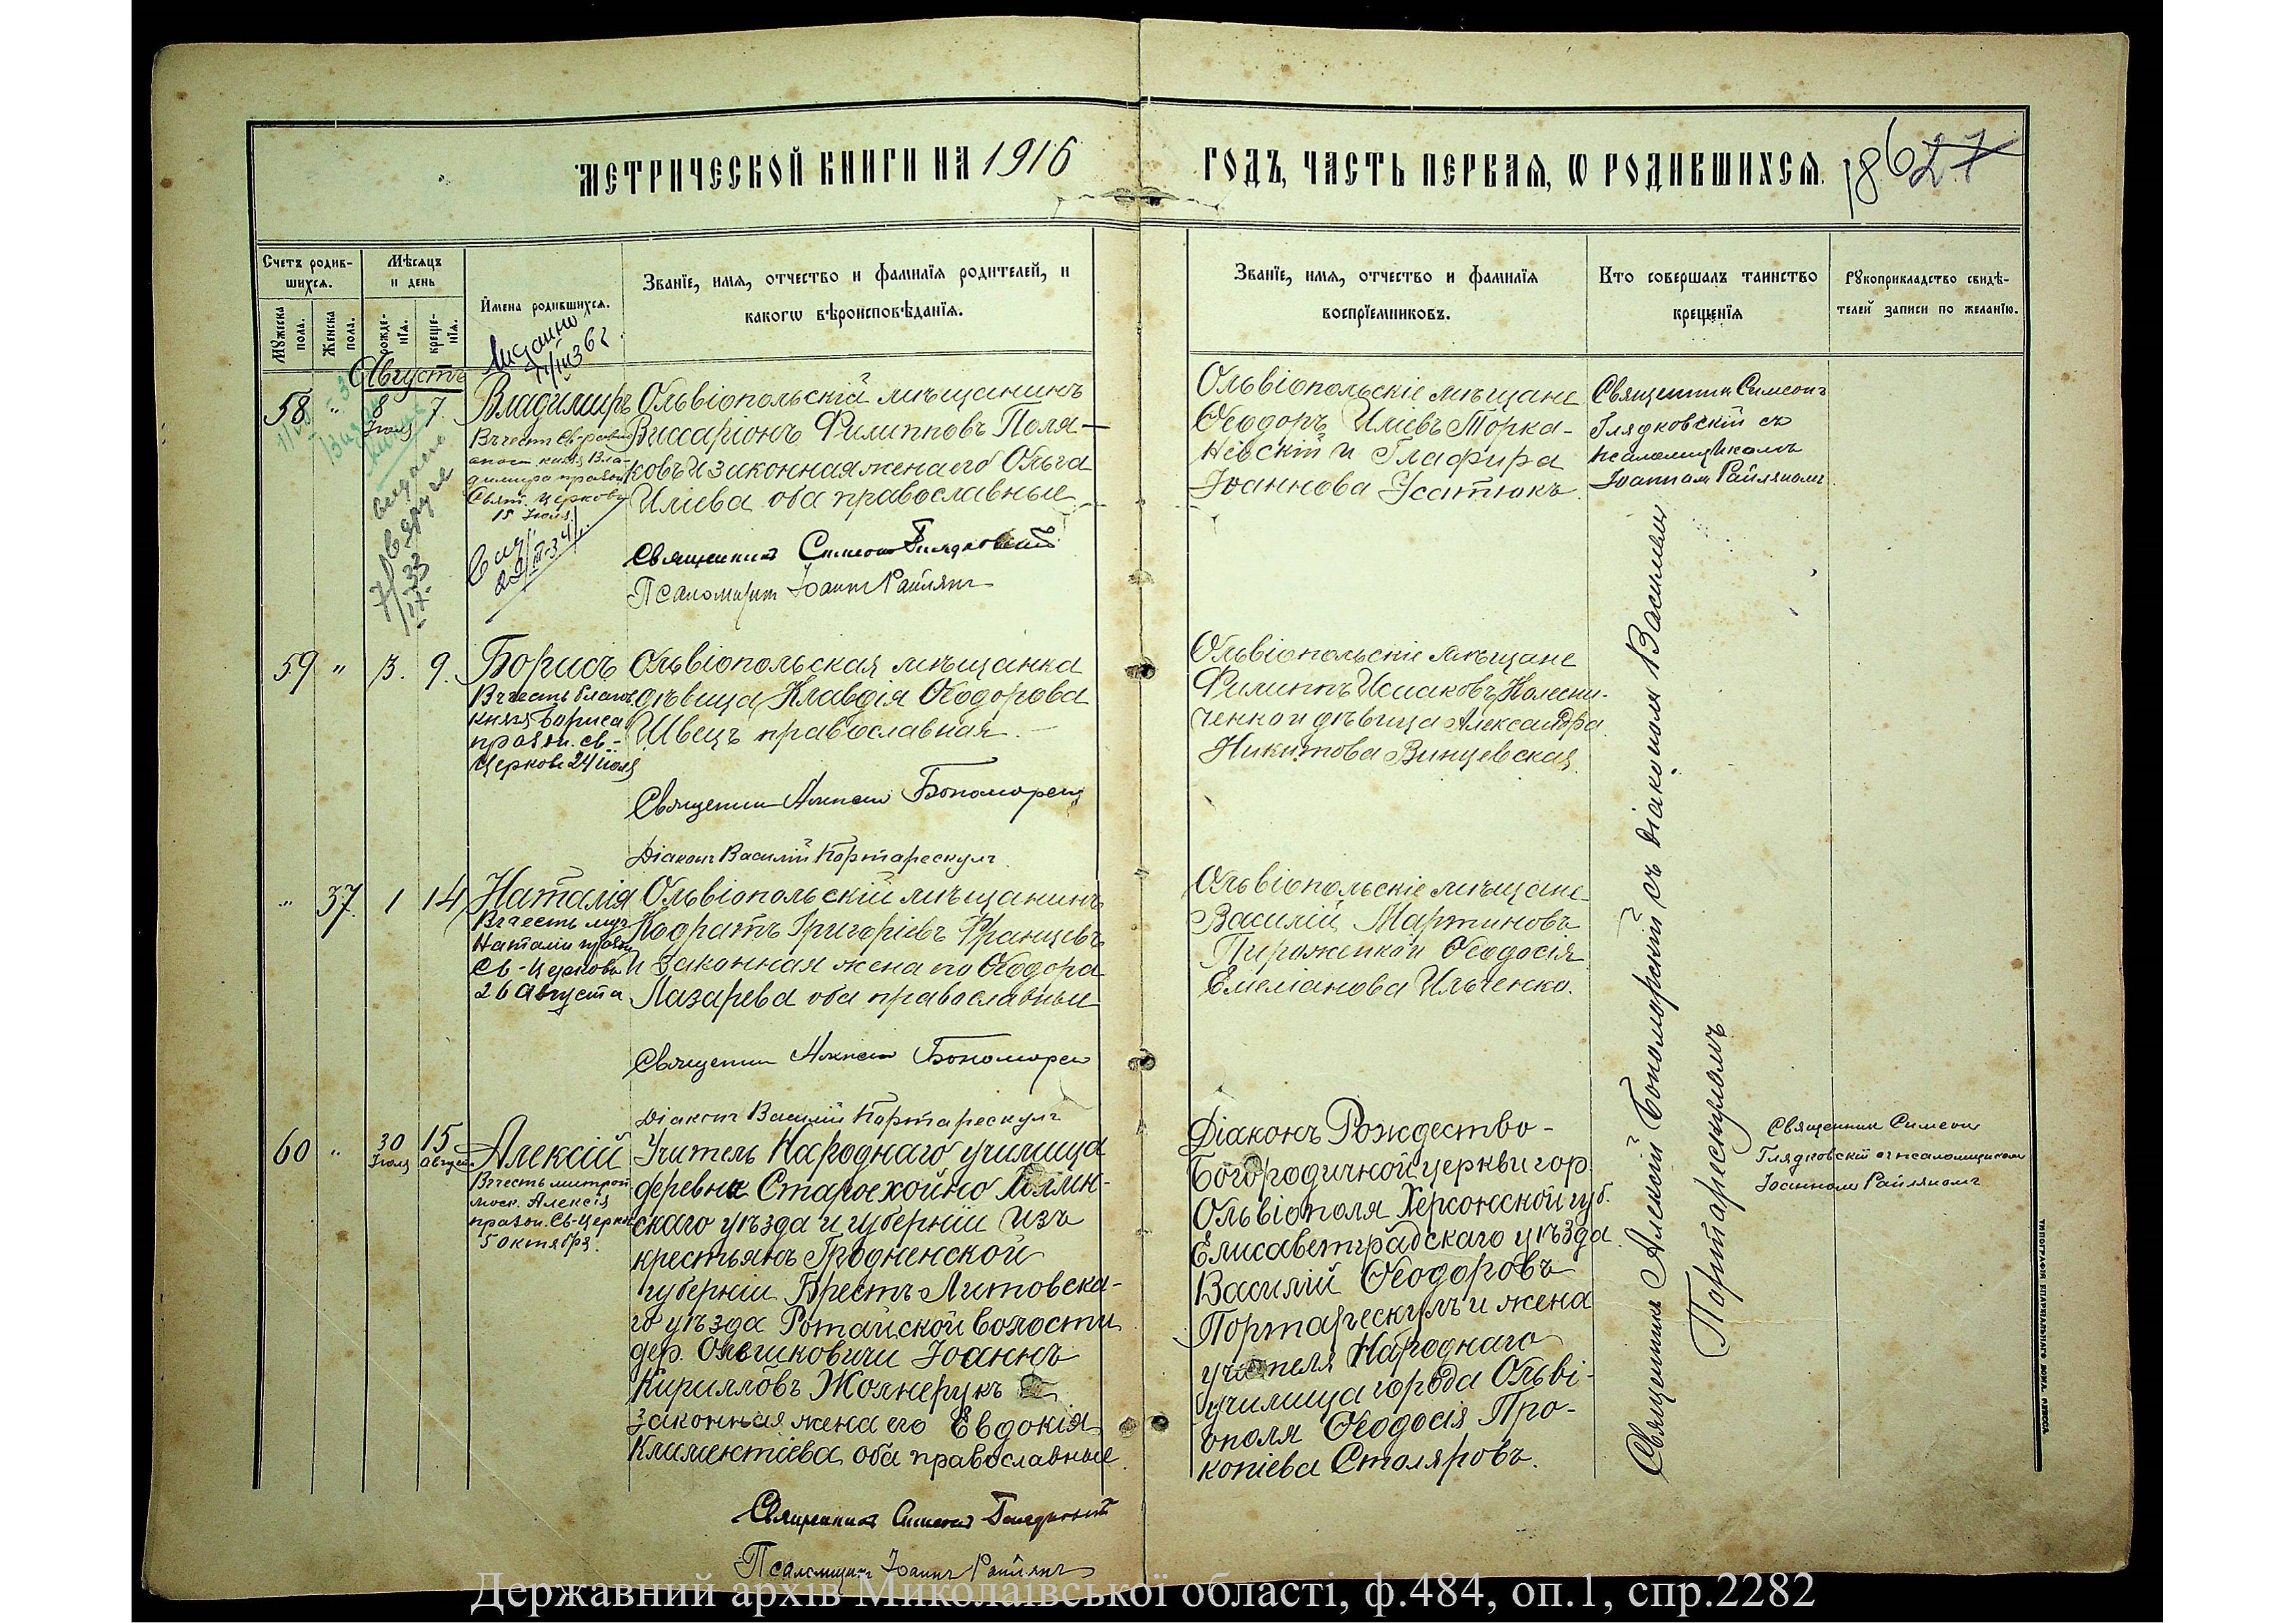 МЕТРИЧЕСКОЙ КНИГИ НА 1916 ГОДЪ, ЧАСТЬ ПЕРВАЯ, Ѡ РОДИВШИХСЯ.
186 27
Счетъ родив-
шихся.
Мꙋжеска пола.
Женска пола.
Мѣсяцъ
и день
рожде-
нїя.
креще-
нїя.
Имена родившихся.
Званїе, имя, отчество и фамилїя родителей, и
какогѡ вѣроисповѣданїя.
Званїе, имя, отчество и фамилїя
воспрїемниковъ.
Кто совершалъ таинство
крещенїя
Рꙋкоприкладство свидѣ-
телей записи по желанїю.
Августъ
58 " 8 Іюля 7
Владимиръ
Въ честь Св. равно
апост. князя Вла-
димира празн.
Свят. Церковь
15 Іюля
Ольвіопольскій мѣщанинъ
Виссаріонъ Филипповъ Поля-
ковъ и законная жена его Ольга
Иліева оба православные
Священникъ Симеонъ Глядковскій
Псаломщикъ Іоаннъ Райлянъ
Ольвіопольскіе мѣщане
Ѳеодоръ Иліевъ Торка-
невскій и Глафира
Іоаннова Усатюкъ
Священникъ Симеонъ
Глядковскій съ
псаломщикомъ
Іоанномъ Райляномъ
выдано
вдруге
59 " 3. 9.
Борисъ
Въ честь благов.
князя Бориса
празн. св.-
Церковь 24 іюля
Ольвіопольская мѣщанка
дѣвица Клавдія Ѳеодорова
Швецъ православная.
Священник Алексій Бономорскій
Діаконъ Василій Портарескулъ
Ольвіопольскіе мѣщане
Филиппъ Исааковъ Колесни-
ченко и дѣвица Александра
Никитова Винцевская
" 37. 1 14
Наталія
Въ честь муч.
Наталіи празн.
Св-Церковь
26 Августа
Ольвіопольскій мѣщанинъ
Кодратъ Григоріевъ Францевъ
и законная жена его Ѳеодора
Лазарева оба православные
Священник Алексій Бономорскій
Діаконъ Василій Портарескулъ
Ольвіопольскіе мѣщане
Василій Мартиновъ
Пироженко и Ѳеодосія
Емеліанова Ильченко.
Священникъ Алексій Бономорскій съ діакономъ Василіемъ
Портарескуломъ
60 " 30 Іюля 15 Августа
Алексій
Въ честь митроп.
моск. Алексія
празн. Св-Церковь
5 октября.
Учитель Народнаго училища
деревни Староехойно Минн-
скаго уѣзда и губерніи изъ
крестьянъ Гродненской
губерніи Брестъ-Литовска-
го уѣзда Ротайской волости
дер. Ольшковичи Іоаннъ
Кирилловъ Жолнерукъ и
законная жена его Евдокія
Климентіева оба православные
Священникъ Симеонъ Глядковскій
Псаломщикъ Іоаннъ Райлянъ
Діаконъ Рождество-
Богородичной церкви гор.
Ольвіополя Херсонской губ.
Елисаветградскаго уѣзда
Василій Ѳеодоровъ
Портарескулъ и жена
учителя Народнаго
училища города Ольві-
ополя Ѳеодосія Про-
копіева Столяровъ.
Священник Симеон
Глядковскій съ псаломщиком
Іоанномъ Райляномъ
ТИПОГРАФІЯ ЕПАРХІАЛЬНАГО ДОМА, ОДЕССА
Державний архів Миколаївської області, ф.484, оп.1, спр.2282